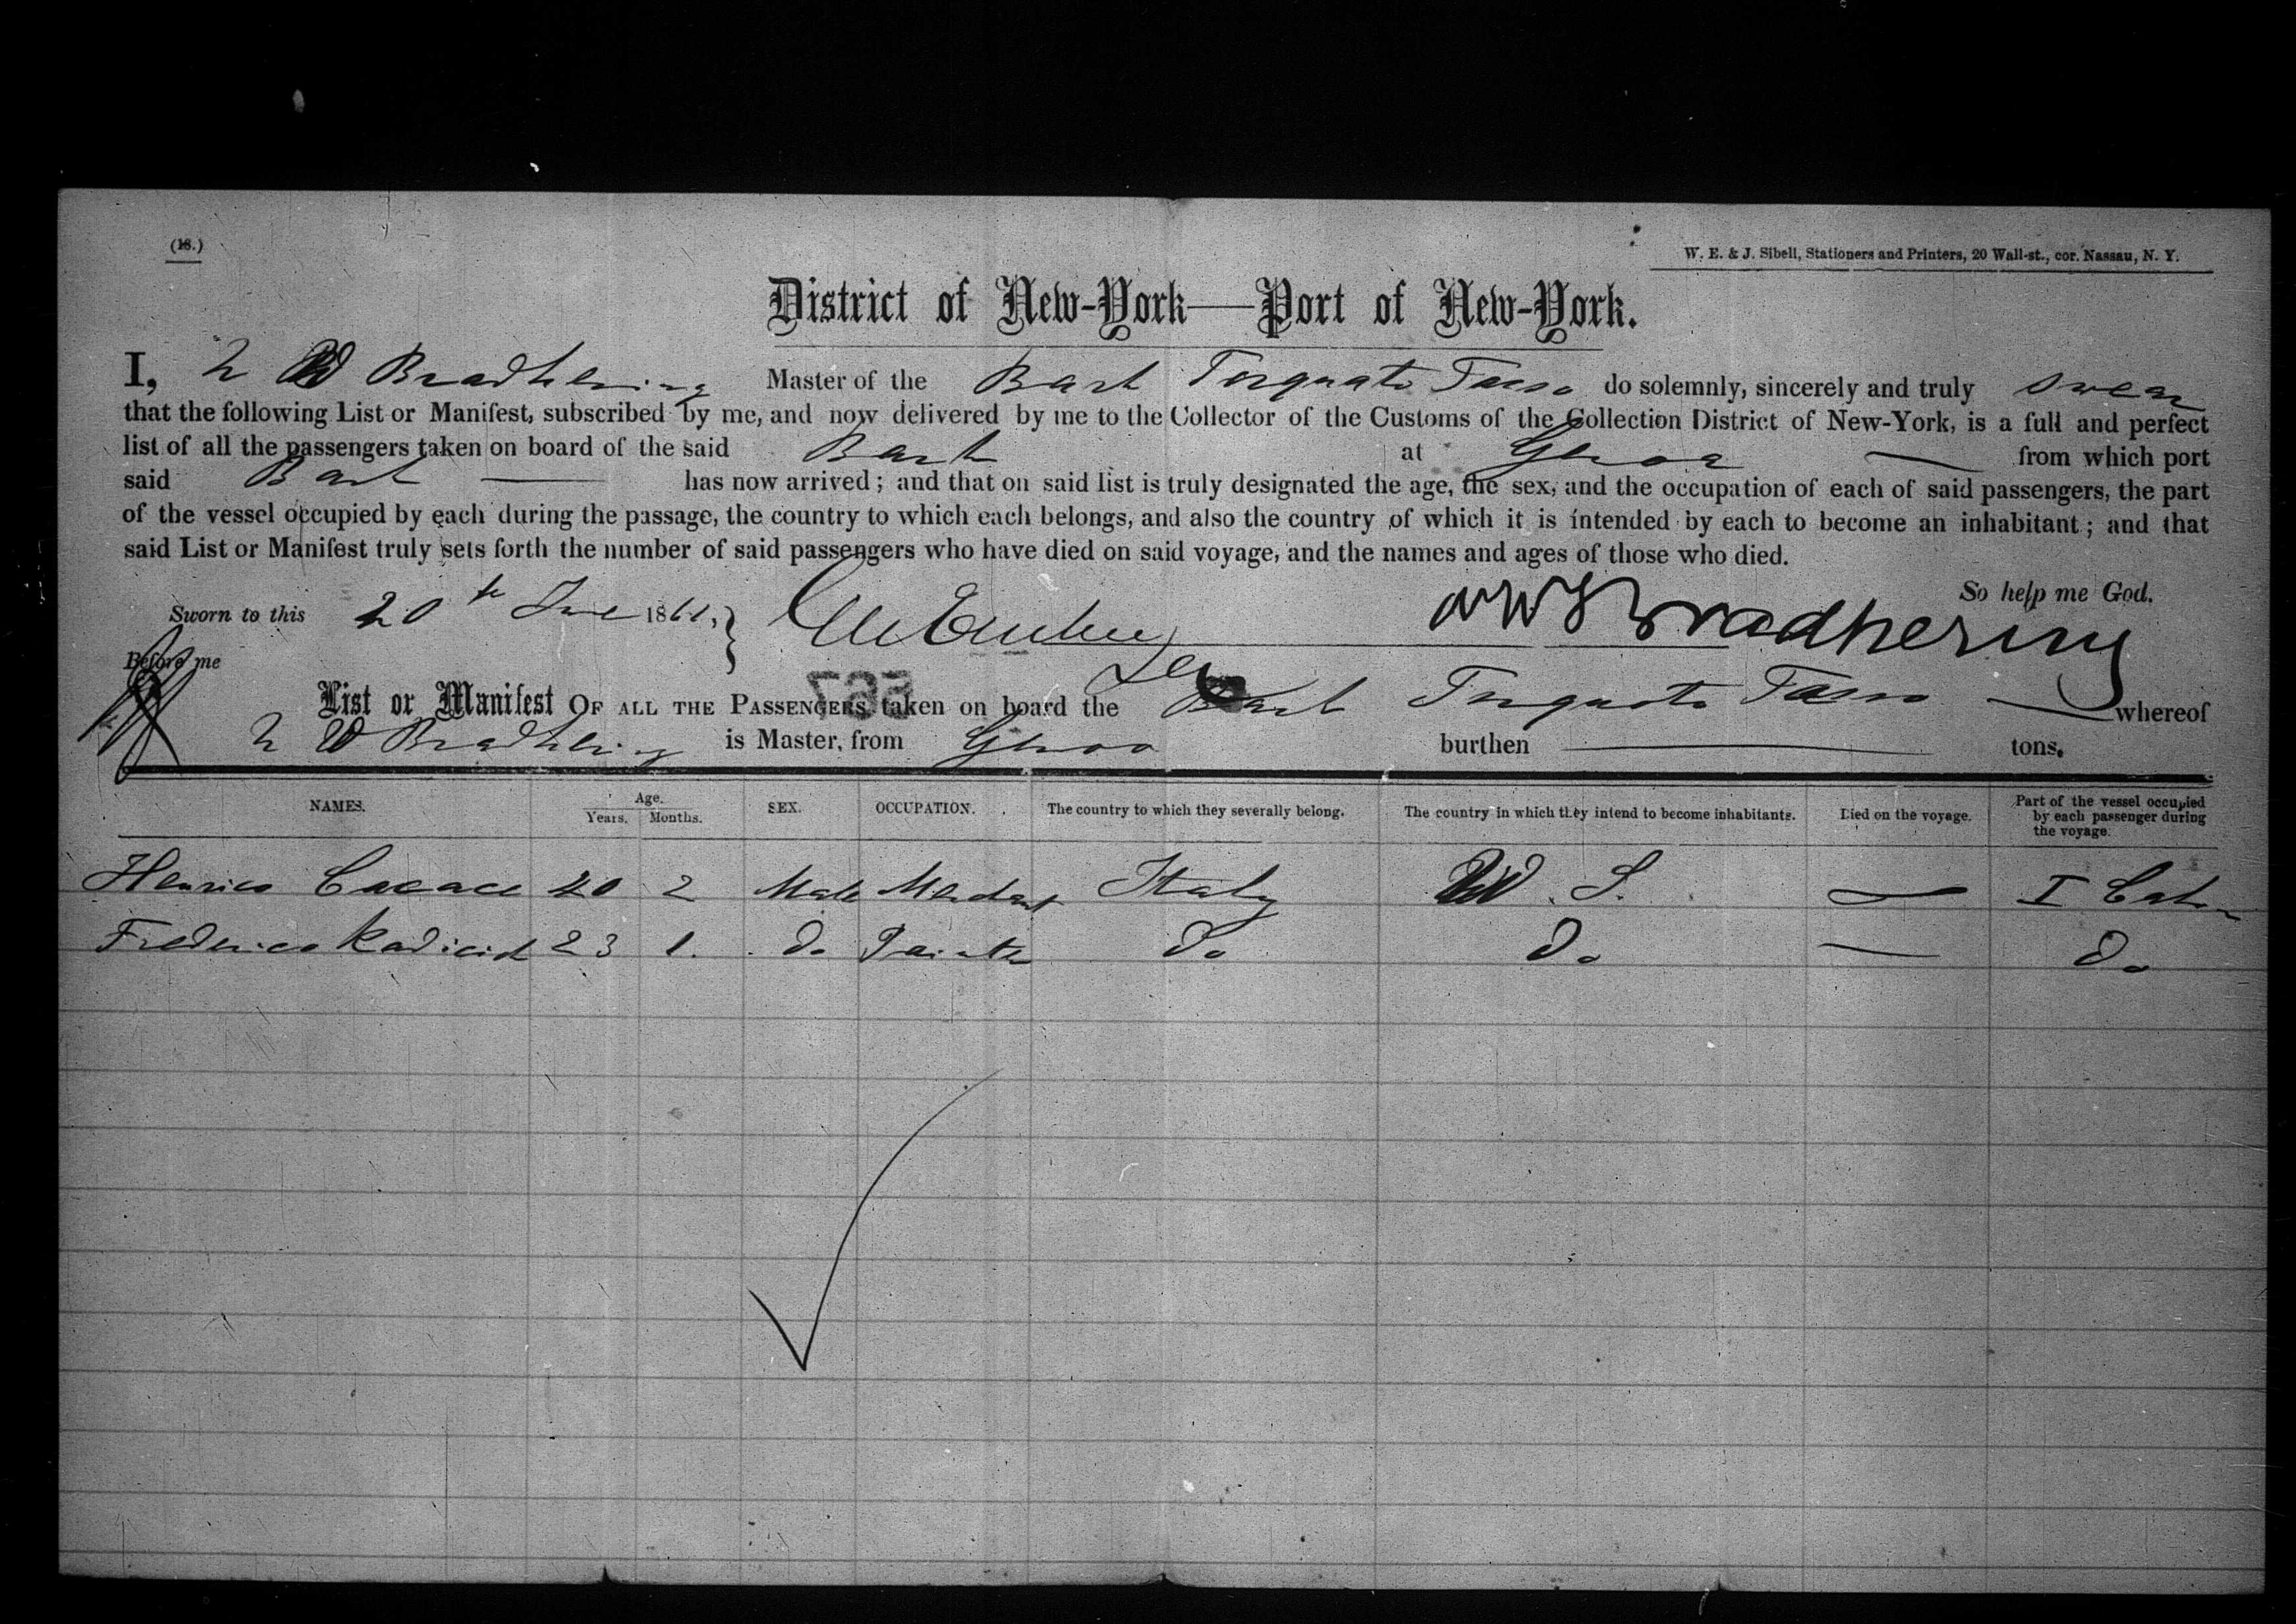 (18.)
W. E. & J. Sibell, Stationers and Printers, 20 Wall-st., cor. Nassau, N. Y.
District of New-York—Port of New-York.
I, W Bradhering Master of the Bark Torquato Tasso do solemnly, sincerely and truly swear
that the following List or Manifest, subscribed by me, and now delivered by me to the Collector of the Customs of the Collection District of New-York, is a full and perfect
list of all the passengers taken on board of the said Bark at Genoa from which port
said Bark has now arrived; and that on said list is truly designated the age, the sex, and the occupation of each of said passengers, the part
of the vessel occupied by each during the passage, the country to which each belongs, and also the country of which it is intended by each to become an inhabitant; and that
said List or Manifest truly sets forth the number of said passengers who have died on said voyage, and the names and ages of those who died.
So help me God.
Sworn to this 20th June 1861, Bradhering
Before me
List or Manifest OF ALL THE PASSENGERS taken on board the Bark Torquato Tasso whereof
W Bradhering is Master, from Genoa burthen tons.
NAMES. Age. Years. Months. SEX. OCCUPATION. The country to which they severally belong. The country in which they intend to become inhabitants. Died on the voyage. Part of the vessel occupied by each passenger during the voyage.
Henrico 2 Male Merchant Italy U. S. — I Cabin
Frederico 23 1. do Painter do do — do